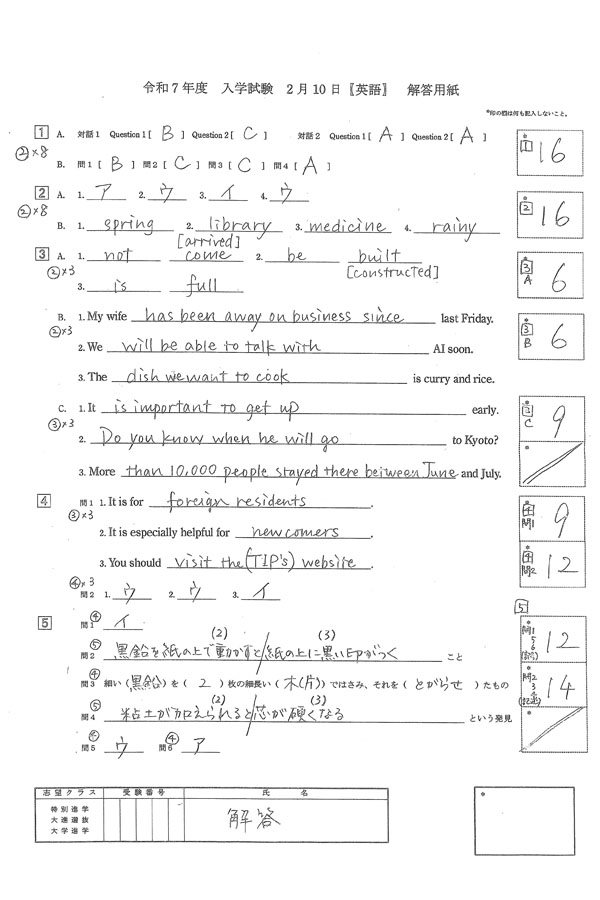 令和7年度 入学試験 2月10日〖英語〗 解答用紙
*印の欄は何も記入しないこと。
1 A. 対話1 Question 1 [ B ] Question 2 [ C ] 対話2 Question 1 [ A ] Question 2 [ A ] * 1 16
②×8 B. 問1 [ B ] 問2 [ C ] 問3 [ C ] 問4 [ A ]
2 A. 1. ア 2. ウ 3. イ 4. ウ * 2 16
②×8 B. 1. spring 2. library 3. medicine 4. rainy
[arrived]
3 A. 1. not come 2. be built * 3 A 6
②×3 [constructed]
3. is full
B. 1. My wife has been away on business since last Friday. * 3 B 6
②×3
2. We will be able to talk with AI soon.
3. The dish we want to cook is curry and rice.
C. 1. It is important to get up early. * 3 C 9
③×3
2. Do you know when he will go to Kyoto?
3. More than 10,000 people stayed there between June and July.
4 問1 1. It is for foreign residents. * 4 問1 9
③×3
2. It is especially helpful for newcomers. * 4 問2 12
3. You should visit the (TIP's) website.
④×3
問2 1. ウ 2. ウ 3. イ
5
5 問1 ④ イ * 問1 5 6 (記号) 12
⑤ (2) (3)
問2 黒鉛を紙の上で動かすと/紙の上に黒い印がつく こと
④
問3 細い(黒鉛)を( 2 )枚の細長い(木(片))ではさみ、それを( とがらせ )たもの * 問2 3 4 (記述) 14
⑤ (2) (3)
問4 粘土が加えられると/芯が硬くなる という発見
④ ④
問5 ウ 問6 ア
志望クラス 受験番号 氏名
特別進学
大進選抜 解答
大学進学
*